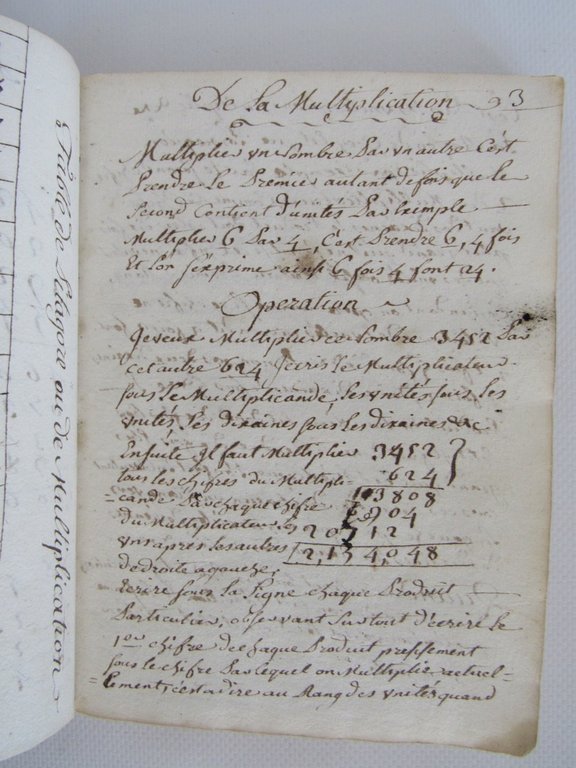 De La Multiplication 3
Multiplier un Nombre Par un autre C'est
Prendre Le Premier autant de fois que le
Second Contient d'unités Par Exemple
Multiplier 6 Par 4, C'est Prendre 6, 4 fois
Et L'on s'exprime ainsi 6 fois 4 font 24.
Operation
Je veux Multiplier ce Nombre 3452 Par
cet autre 624, J'ecris Le Multiplicateur
sous Le Multiplicande, Les unités sous Les
unités, Les dixaines sous Les dixaines &c
Ensuite Il faut Multiplier 3452
tous les chifres du Multipli= 624
cande Par chaque chifre 13808
du Multiplicateur Les 6904
uns après les autres 20712
de droite a gauche, 2,154,048
Ecrire sous La Ligne chaque Produit
Particulier, observant Sur tout d'ecrire le
1er chifre de chaque Produit precisement
sous le chifre Par Lequel on Multiplie actuel=
=Lement, c'est a dire au Rang des unités quand
Table de Pitagore ou de Multiplication